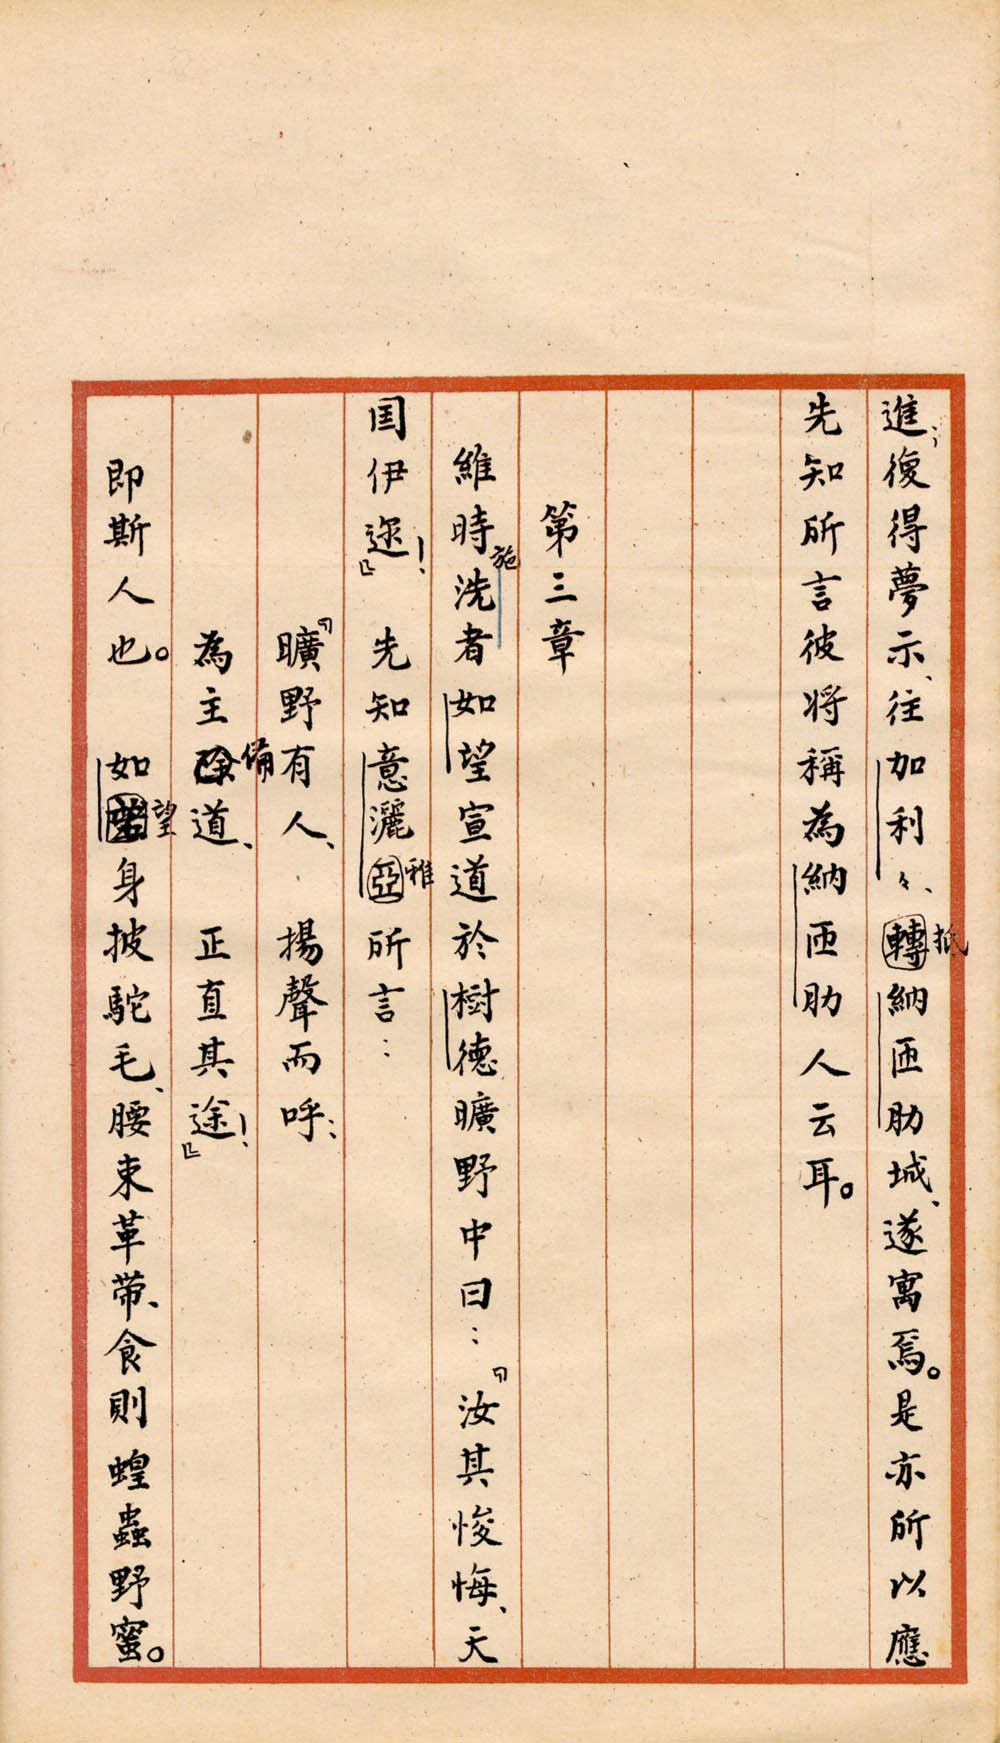 進；復得夢示、往加利々、轉抵納匝肋城、遂寓焉。是亦所以應
先知所言彼將稱為納匝肋人云耳。
第三章
維時施洗者如望宣道於樹德曠野中曰：『汝其悛悔、天
国伊邇！』先知意灑亞雅所言：
『曠野有人、揚聲而呼：
為主備道、正直其途！』
即斯人也。如望身披駝毛、腰束革帶、食則蝗蟲野蜜。